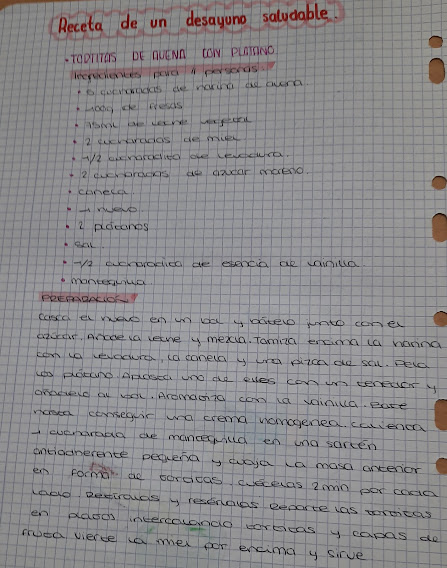 Receta de un desayuno saludable.
• TORTITAS DE AVENA CON PLÁTANO
Ingredientes para 4 personas:
• 6 cucharadas de harina de avena
• 400g de fresas
• 75ml de leche vegetal
• 2 cucharadas de miel
• 1/2 cucharadita de levadura.
• 2 cucharadas de azúcar moreno.
• canela
• 1 huevo
• 2 plátanos
• sal.
• 1/2 cucharadita de esencia de vainilla
• mantequilla
PREPARACIÓN
Casca el huevo en un bol y bátelo junto con el
azúcar. Añade la leche y mezcla. Tamiza encima la harina
con la levadura, la canela y una pizca de sal. Pela
los plátano. Aplasta uno de ellos con un tenedor y
añádelo al bol. Aromatiza con la vainilla. Bate
hasta conseguir una crema homogénea. Calienta
1 cucharada de mantequilla en una sartén
antiadherente pequeña y cuaja la masa anterior
en forma de tortitas. Cuécelas 2min por cada
lado. Retíralas y resérvalas. Reparte las tortitas
en platos intercalando tortitas y capas de
fruta vierte la miel por encima y sirve